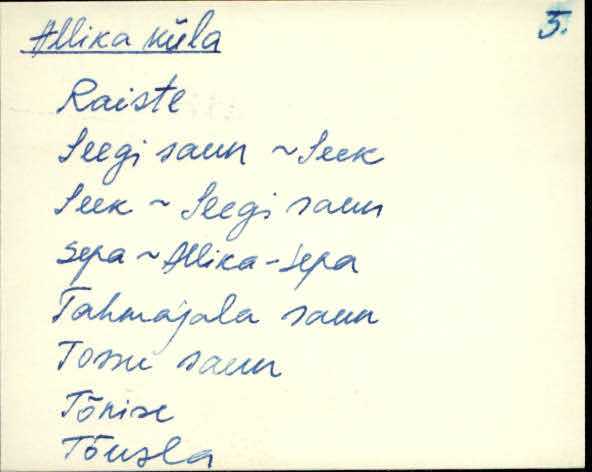 Allika küla 3.
Raiste
Seegi saun ~ Seek
Seek ~ Seegi saun
Sepa ~ Allika-Sepa
Tahmajala saun
Tossu saun
Tõnise
Tõusla